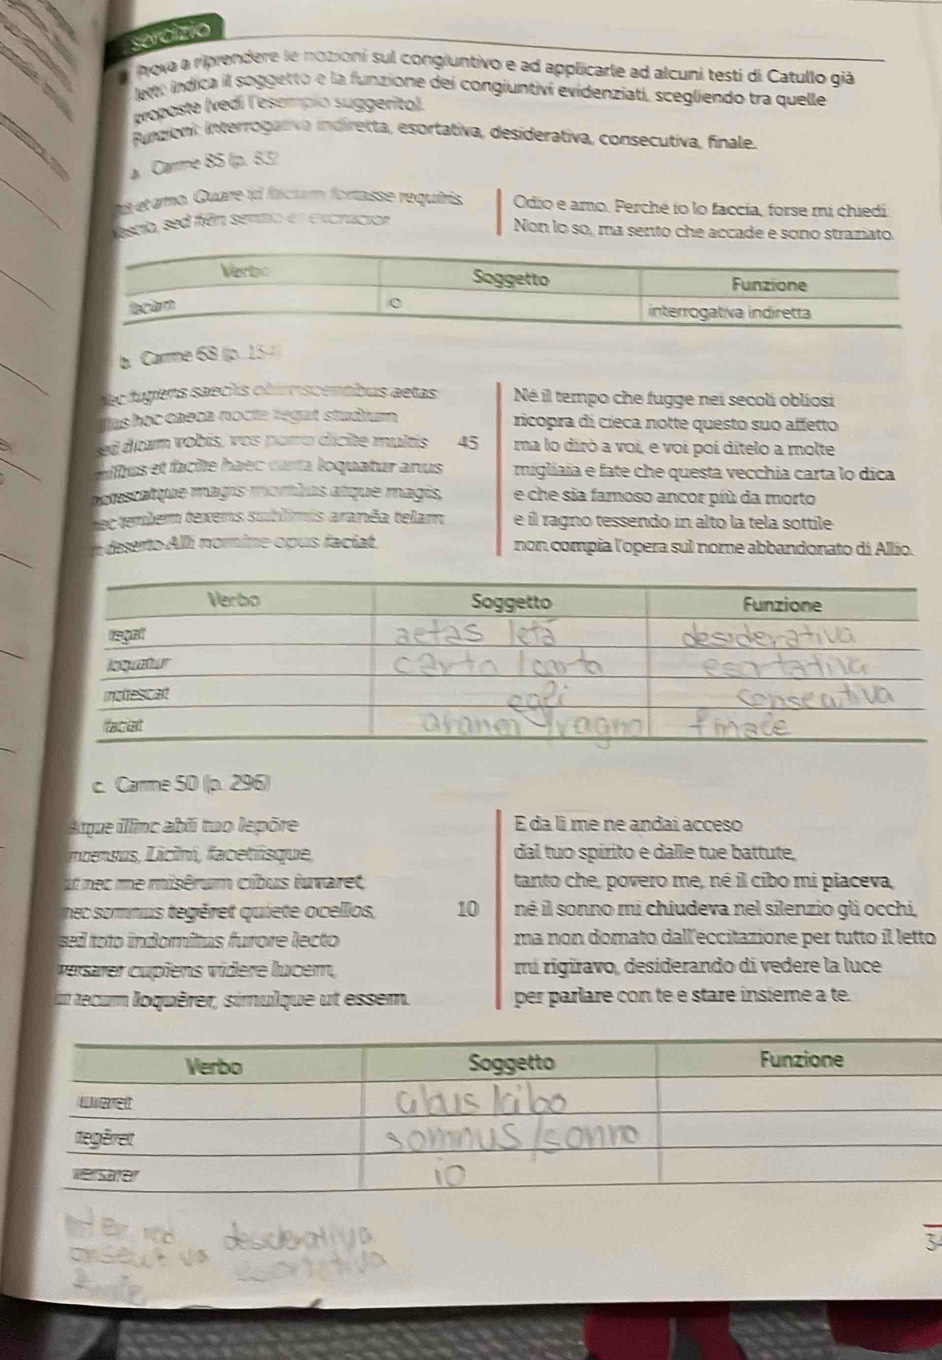 sercizio
Prova a riprendere le nozioni sul congiuntivo e ad applicarle ad alcuni testi di Catullo già
letti: indica il soggetto e la funzione dei congiuntivi evidenziati, scegliendo tra quelle
proposte (vedi l'esempio suggerito).
Funzioni: interrogativa indiretta, esortativa, desiderativa, consecutiva, finale.
a. Carme 85 (p. 83)
et amo. Quare id faciam fortasse requiris.
Nescio, sed fieri sentio et excrucior.
Odio e amo. Perché io lo faccia, forse mi chiedi.
Non lo so, ma sento che accade e sono straziato.
Verbo Soggetto Funzione
faciam io interrogativa indiretta
b. Carme 68 (p. 154)
Nec fugiens saeclis obliviscentibus aetas
illius hoc caeca nocte tegat studium
sed dicam vobis, vos porro dicite multis 45
milibus et facite haec carta loquatur anus
notescatque magis mortuus atque magis,
nec tenuem texens sublimis aranēa telam
in deserto Alli nomine opus faciat.
Né il tempo che fugge nei secoli obliosi
ricopra di cieca notte questo suo affetto
ma lo dirò a voi, e voi poi ditelo a molte
migliaia e fate che questa vecchia carta lo dica
e che sia famoso ancor più da morto
e il ragno tessendo in alto la tela sottile
non compia l'opera sul nome abbandonato di Allio.
Verbo Soggetto Funzione
tegat aetas letà desiderativa
loquatur carta / carta esortativa
notescat egli consecutiva
faciat aranea / ragno finale
c. Carme 50 (p. 296)
Atque illinc abii tuo lepōre
incensus, Licini, facetiisque,
ut nec me misērum cibus iuvaret,
nec somnus tegēret quiete ocellos, 10
sed toto indomitus furore lecto
versarer cupiens videre lucem,
ut tecum loquērer, simulque ut essem.
E da lì me ne andai acceso
dal tuo spirito e dalle tue battute,
tanto che, povero me, né il cibo mi piaceva,
né il sonno mi chiudeva nel silenzio gli occhi,
ma non domato dall'eccitazione per tutto il letto
mi rigiravo, desiderando di vedere la luce
per parlare con te e stare insieme a te.
Verbo Soggetto Funzione
iuvaret cibus / cibo
tegēret somnus / sonno
versarer io
inter ind desiderativa
consecutiva esortativa
finale